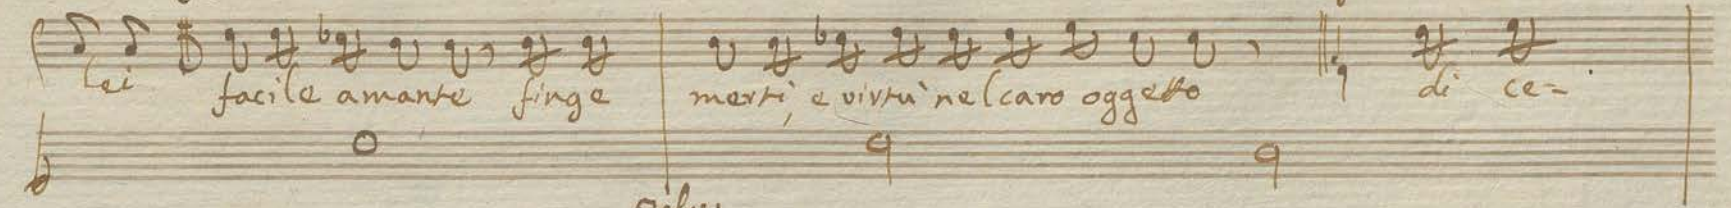 lei facile amante finge merti, e virtù nel caro oggetto di ce=